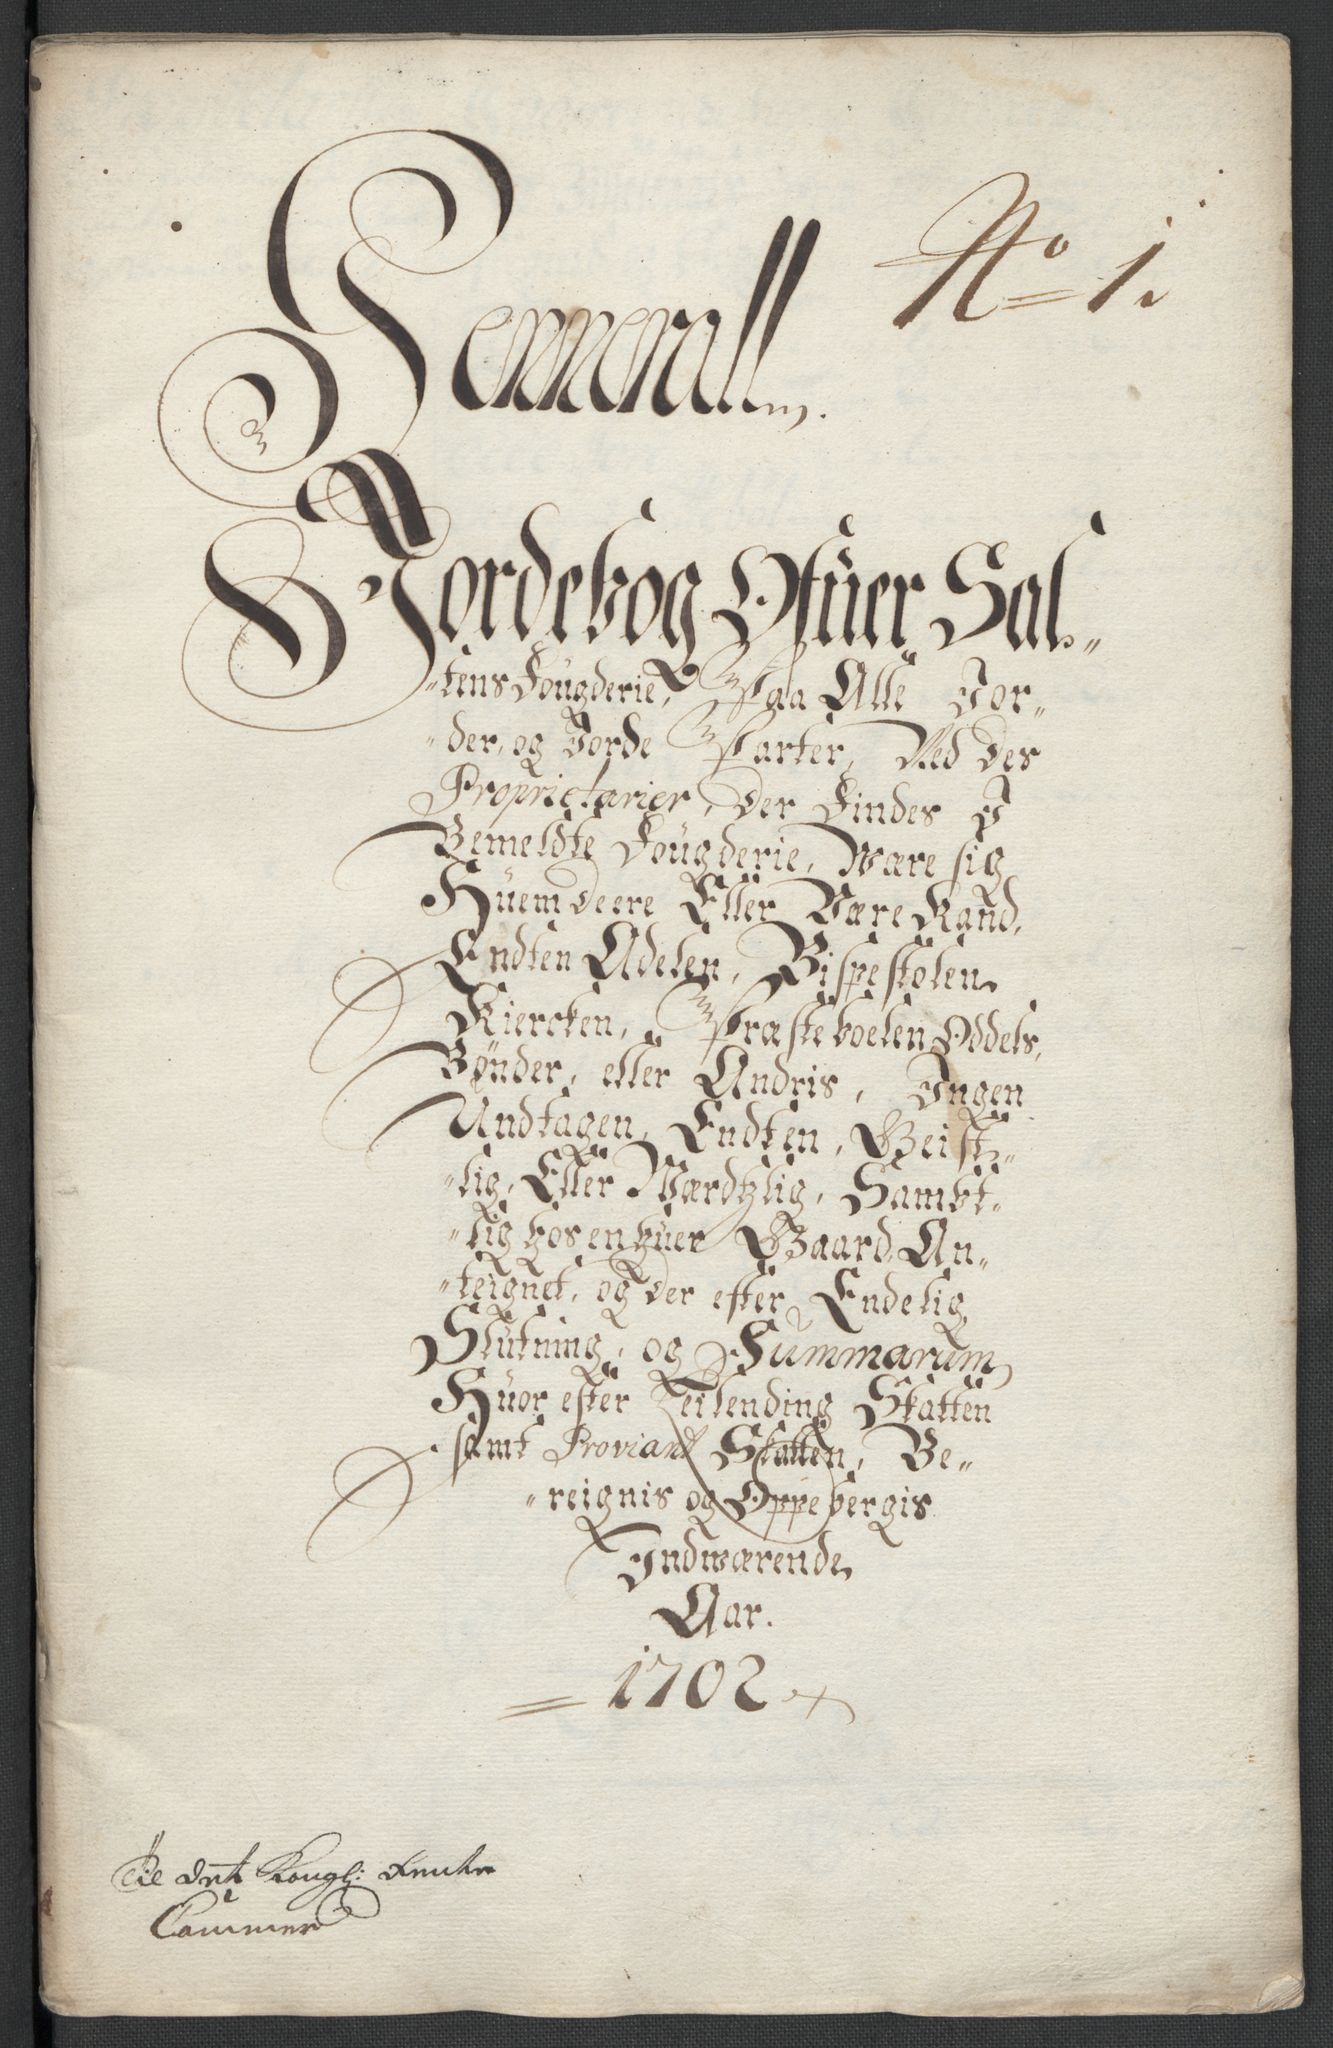 No 1.
Generall
Jordebog Ofuer Sal-
tens Fougderie, Paa Alle Jor-
der, og Jorde Parter, Med des
Proprietarier, der Findes J
Bemeldte Fougderie, Være sig
Huem deere Eller Være Kand,
Endten Adelen, Bispestolen
Kiercken, Præsteboelen Oddels,
Bønder, eller Andris, Jngen
Undtagen, Endten, Geist-
lig, Eller Værdtzlig, Sambt-
lig hos en huer Gaard An-
teignet, og der efter Endelig
Slutning, og Summarum
Huor efter Leilending Skatten
samt Proviant Skatten, Be-
reignis og Oppebergis
Indwærende
Aar.
1702
Til det Kongl: Rente
Cammer